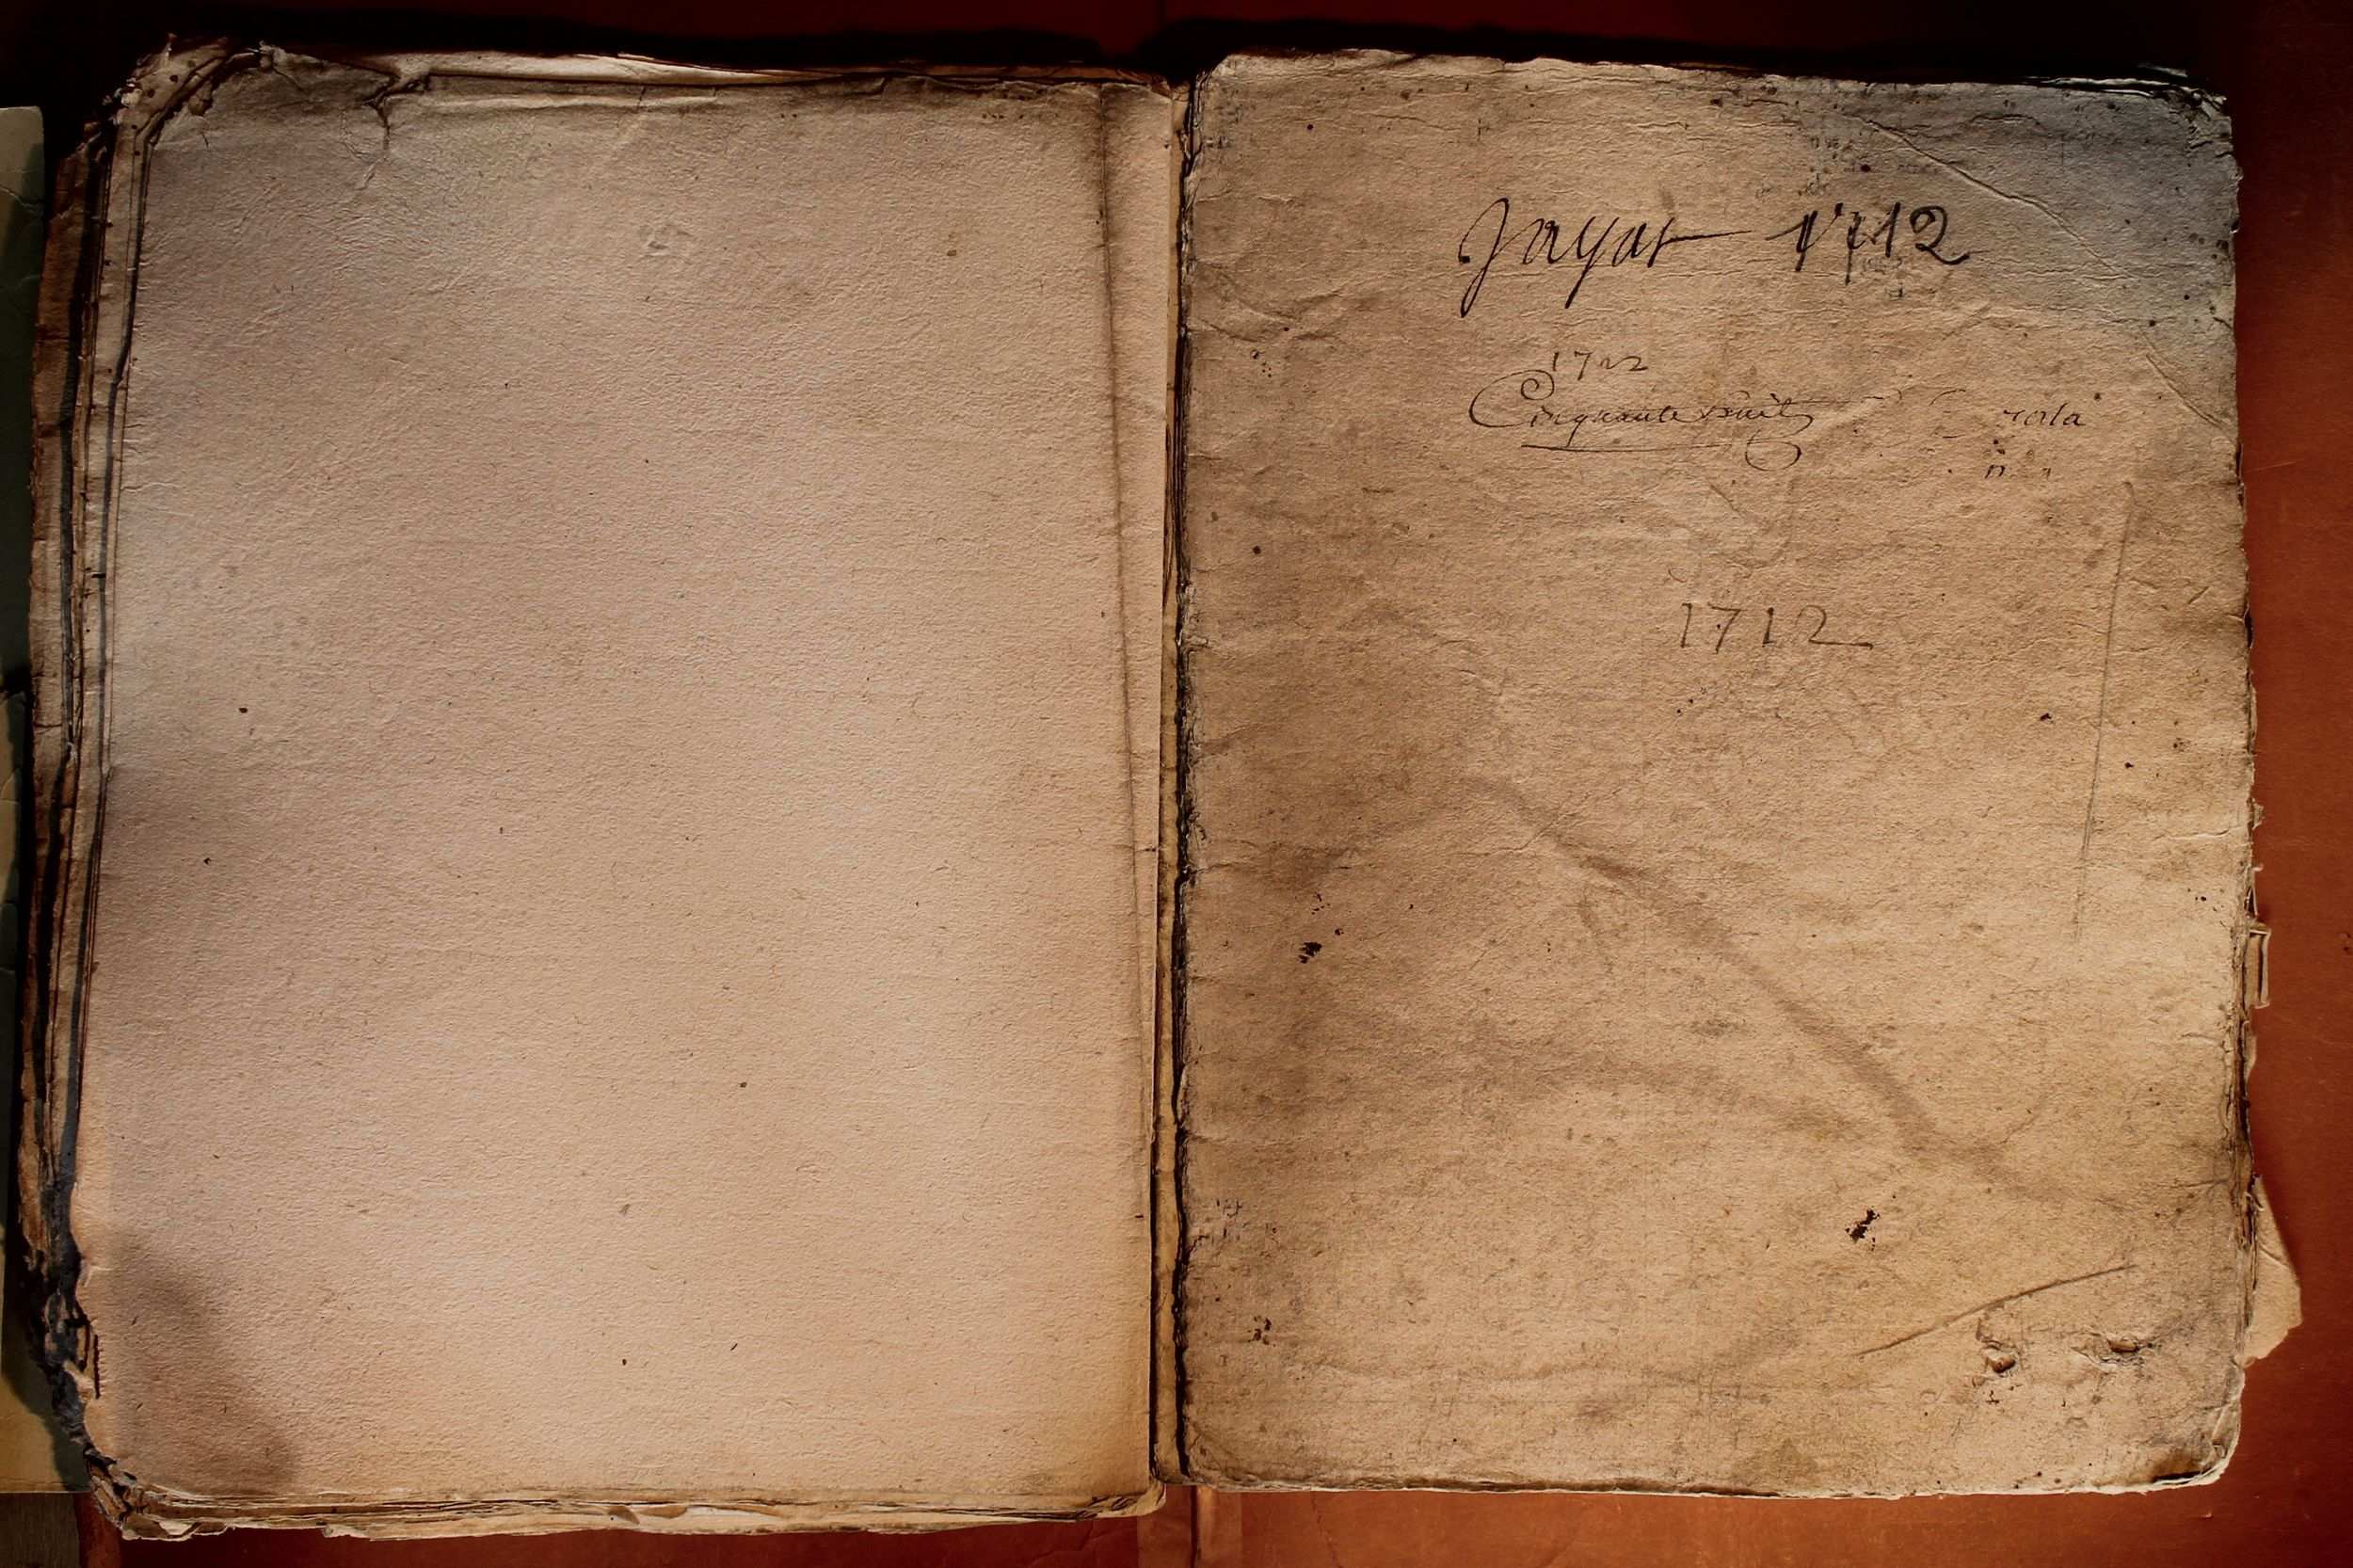 Jayat 1712
1722
Cinquante huit
1712